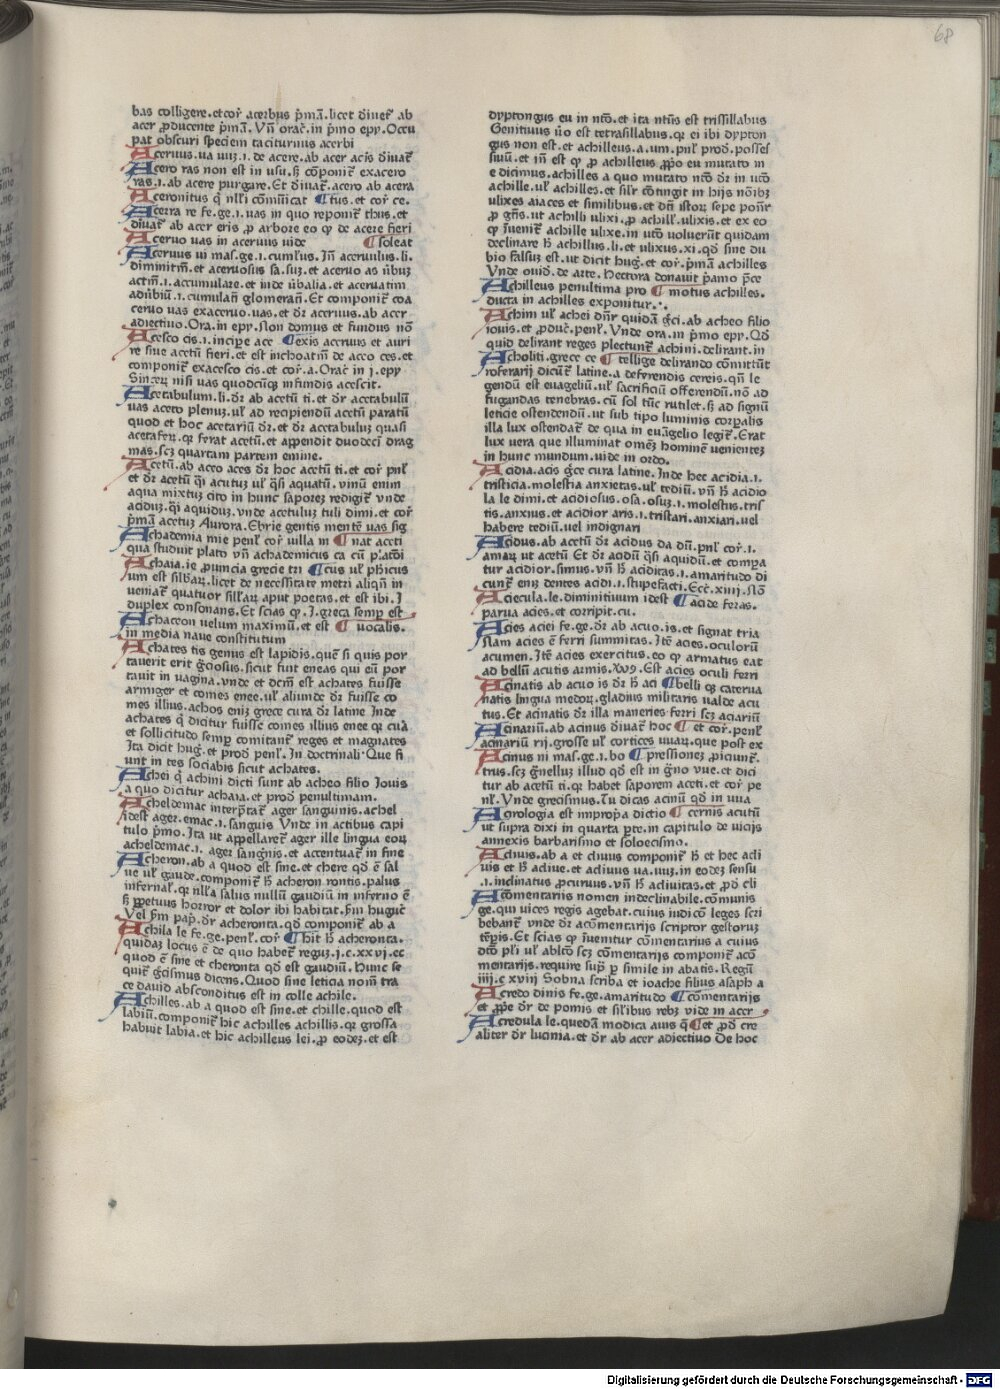 68
bas colligere.⁊ cor̄ acerbus p̄mā.licet diuet᷑ ab
acer ꝓducente p̄mā. Vn̄ orac̄.in p̄mo epy.Occu
pat obscuri speciem taciturnus acerbi
Aceruus.ua uuꝫ.i. de acere.ab acer acis diuat᷑
Acero ras non est in usu.sꝫ cōponit᷑ exacero
ras.i.ab acere purgare.Et diuat᷑.acero ab acera
Aceronitus q̄ nłłi cōmūicat ¶tus.et cor̄ ce.
Acerra re fe.ge.i.uas in quo reponit᷑ thus.et
diuat᷑ ab acer eris ꝓ arbore eo ꝙ de acere fieri
Aceruo uas in aceruus uide ¶soleat
Aceruus ui mas.ge.i.cumłus. In̄ aceruulus.li.
diminitm̄.et aceruosus sa.suꝫ.et aceruo as ūbuꝫ
actm̄.i.accumulare.et inde ūbalia.et aceruatim
adūbiū.i.cumulan̄ glomeran̄.Et componit᷑ coa
ceruo uas exaceruo.uas.et dꝛ aceruus.ab acer
adiectiuo.Ora.in epy.Non domus et fundus nō
Acesco cis.i.incipe ace ¶exis aceruus et auri
re siue acetū fieri.et est inchoatm̄ de aceo ces.et
componit᷑ exacesco cis.et cor̄.a.Orac̄ in j.epy
Sinceꝝ nisi uas quodcūqꝫ infundis acescit.
Acetabulum.li.dꝛ ab acetū ti.et dꝛ acetabulū
uas aceto plenuꝫ.uł ad recipiendū acetū paratū
quod et hoc acetariū dꝛ.et dꝛ acetabuluꝫ quasi
acetaferꝫ.qꝛ ferat acetū.et appendit duodeci drag
mas.scꝫ quartam partem emine.
Acetū.ab aceo aces dꝛ hoc acetū ti.et cor̄ pnł
et dꝛ acetū q̄i acutuꝫ uł q̄si aquatū.uinū enim
aqua mixtuꝫ cito in hunc saporeꝫ redigit᷑ vnde
aciduꝫ.q̄i aquiduꝫ.vnde acetuluꝫ tuli dimi.et cor̄
p̄mā acetuꝫ Aurora.Ebrie gentis mentē uas sig
Achademia mie penł cor̄ uilla in ¶nat aceti
qua studuit plato vn̄ achademicus ca cū p.acōi
Achaia.ie ꝓuncia grecie tri ¶cus uł phicus
um est silbaꝝ.licet de necessitate metri aliqn̄ in
ueniat᷑ quatuor sillaꝝ aput poetas.et est ibi.I
duplex consonans.Et scias ꝙ.I.greca semp est
Achateon uelum maximū.et est ¶uocalis.
in media naue constitutum
Achates tis genus est lapidis.quē si quis por
tauerit erit ḡciosus.sicut fuit eneas qui eū por
tauit in uagina.vnde et dcm̄ est achates fuisse
armiger et comes enee.uł aliunde dꝛ fuisse co
mes illius.achos enīꝫ grece cura dꝛ latine Inde
achates q̄ dicitur fuisse comes illius enee qꝛ cuā
et sollicitudo semꝑ comitant᷑ reges et magnates
Ita dicit hug̃.et prod̄ penł.In doctrinali Que fi
unt in tes sociabis sicut achates.
Achei q̄ achini dicti sunt ab acheo filio Iouis
a quo dicitur achaia.et prod̄ penultimam.
Acheldemac interp̄tat᷑ ager sanguinis.achel
idest ager.emac.i.sanguis Vnde in actibus capi
tulo p̄mo.Ita ut appellaret᷑ ager ille lingua eoꝝ
acheldemac.i. ager sang̃nis.et accentuat᷑ in fine
Acheron.ab a quod est sine.et chere qd̄ ē sal
ue uł gaude.componit᷑ h̄ acheron rontis.palus
infernał.qꝛ nłła salus nullū gaudiū in inferno ē
sꝫ ꝑpetuus horror et dolor ibi habitat.ſm huguc̄
Vel ſm pap̄.dꝛ acheronta.qd̄ componit᷑ ab a
Achila le fe.ge.penł.cor̄ ¶Chit h̄ acheronta.
quidaꝫ locus ē de quo habet᷑ reguꝫ.j.c.xxvj.ec
quod ē sine et cheronta qd̄ est gaudiū.Hunc se
quit᷑ g̃cismus dicens.Quod sine leticia nom̄ tra
ce dauid absconditus est in colle achile.
Achilles.ab a quod est sine.et chille.quod est
labiū.componit᷑ hic achilles achillis.qꝛ grossa
habuit labia.et hic achilleus lei.ꝓ eodeꝫ.et est
dyptongus eu in ntō.et ita ntūs est trissillabus
Genitiuus ūo est tetrasillabus.qꝛ ei ibi dypton
gus non est.et achilleus.a.um.pnł prod̄.posses
siuū.et in̄ est ꝙ ꝓ achilleus ꝓprio eu mutato in
e dicimus.achilles a quo mutato ntō dꝛ in utō
achille.uł achilles.et siłr cōtingit in hijs nōibꝫ
ulixes aiaces et similibus.et dn̄i istoꝝ sepe ponit᷑
ꝓ gn̄s.ut achilli ulixi.ꝓ achilł.ulixis.et ex eo
ꝙ īuenit᷑ achille ulixe.in utō uoluerūt quidam
declinare h̄ achillus.li.et ulixus.xi.qd̄ sine du
bio falsuꝫ est.ut dicit hug̃.et cor̄.p̄mā achilles
Vnde ouid̄.de arte. Hectora donauit p̄amo p̄ce
Achilleus penultima pro ¶motus achilles.
ducta in achilles exponitur.
Achim uł achei dn̄r quidā g̃ci.ab acheo filio
iouis.et ꝓduc̄.penł. Vnde ora.in p̄mo epy.Qd̄
quid delirant reges plectunt᷑ achini.delirant.in
Acholiti.grece ce ¶tellige delirando cōmittūt
roferarij dicūt᷑ latine.a deferendis cereis.qn̄ le
gendū est euageliū.uł sacrificiū offerendū.nō ad
fugandas tenebras.cū sol tūc rutilet.sꝫ ad signū
leticie ostendendū.ut sub tipo luminis corꝑalis
illa lux ostendat᷑ de qua in euāgelio legit᷑.Erat
lux uera que illuminat omeꝫ hominē uenienteꝫ
in hunc mundum.uide in ordo.
Acidia.acis g̃ce cura latine. Inde hec acidia.i.
tristicia.molestia anxietas.uł tediū.vn̄ h̄ acidio
la le dimi.et acidiosus.osa.osuꝫ.i.molestus.tris
tis.anxius.et acidior aris.i.tristari.anxiari.uel
habere tediū.uel indignari
Acidus.ab acetū dꝛ acidus da dū.pnł cor̄.i.
amaꝝ ut acetū Et dꝛ acidū q̄si aquidū.et compa
tur acidior.simus.vn̄ h̄ aciditas.i.amaritudo di
cunt᷑ enīꝫ dentes acidi.i.stupefacti.Ecc̄.xiiij.Nō
Aciecula.le.diminitiuum idest ¶acide feras.
parua acies.et corripit.cu.
Acies aciei fe.ge.dꝛ ab acuo.is.et signat tria
Nam acies ē ferri summitas. Itē acies.oculorū
acumen. Itē acies exercitus.eo ꝙ armatus eat
ad bellū acutis armis.Xvs.Est acies oculi ferri
Acinatis ab acuo is dꝛ h̄ aci ¶belli qꝫ caterua
natis lingua medoꝝ.gladius militaris ualde acu
tus.Et acinatis dꝛ illa maneries ferri scꝫ aciariū
Acinariū.ab acinus diuat᷑ hoc ¶et cor̄.penł
acinariū rij.grosse uł cortices uuaꝝ.que post ex
Acinus ni mas.ge.i.bo ¶pressionez ꝓiciunt᷑.
trus.scꝫ g̃nelluꝫ illud qd̄ est in g̃no vue.et dici
tur ab acetū ti.qꝛ habet saporem aceti.et cor̄ pe
nł.Vnde grecismus.Tu dicas acinū qd̄ in uua
Acrologia est impropa dictio ¶cernis acutū
ut supra dixi in quarta ꝑte.in capitulo de uicijs
annexis barbarismo et soloecismo.
Acliuis.ab a et cliuus componit᷑ h̄ et hec acli
uis et h̄ acliue.et acliuus ua.uuꝫ.in eodeꝫ sensu
.i.inclinatus ꝓcuruus.vn̄ h̄ acliuitas.et ꝓd̄ cli
Acomentariis nomen indeclinabile.cōmunis
ge.qui uices regis agebat.cuius iudicō leges scri
bebant᷑ vnde dꝛ acōmentarijs scriptor gestoruꝫ
tēpis.Et scias ꝙ īuenitur cōmentarius a cuius
dtō płi uł abltō scꝫ cōmentarijs componit᷑ acō
mentarijs.require sup̄ ꝓ simile in abatis.Regū
iiij.c xviij Sobna scriba et ioache filius asaph a
Acredo dinis fe.ge.amaritudo ¶cōmentarijs
et ꝓpe dꝛ de pomis et siłibus rebꝫ vide in acer
Acredula le.quedā modica auis q̄ ¶et ꝓd̄ cre
aliter dꝛ lucinia.et dꝛ ab acer adiectiuo De hoc
Digitalisierung gefördert durch die Deutsche Forschungsgemeinschaft - DFG